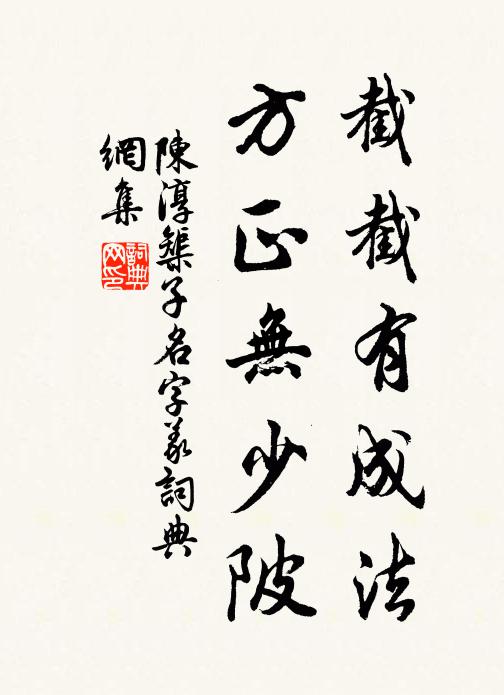 截截有成法
方正無少陂
陳淳榘子名字義詞典
網集
詞典
网印